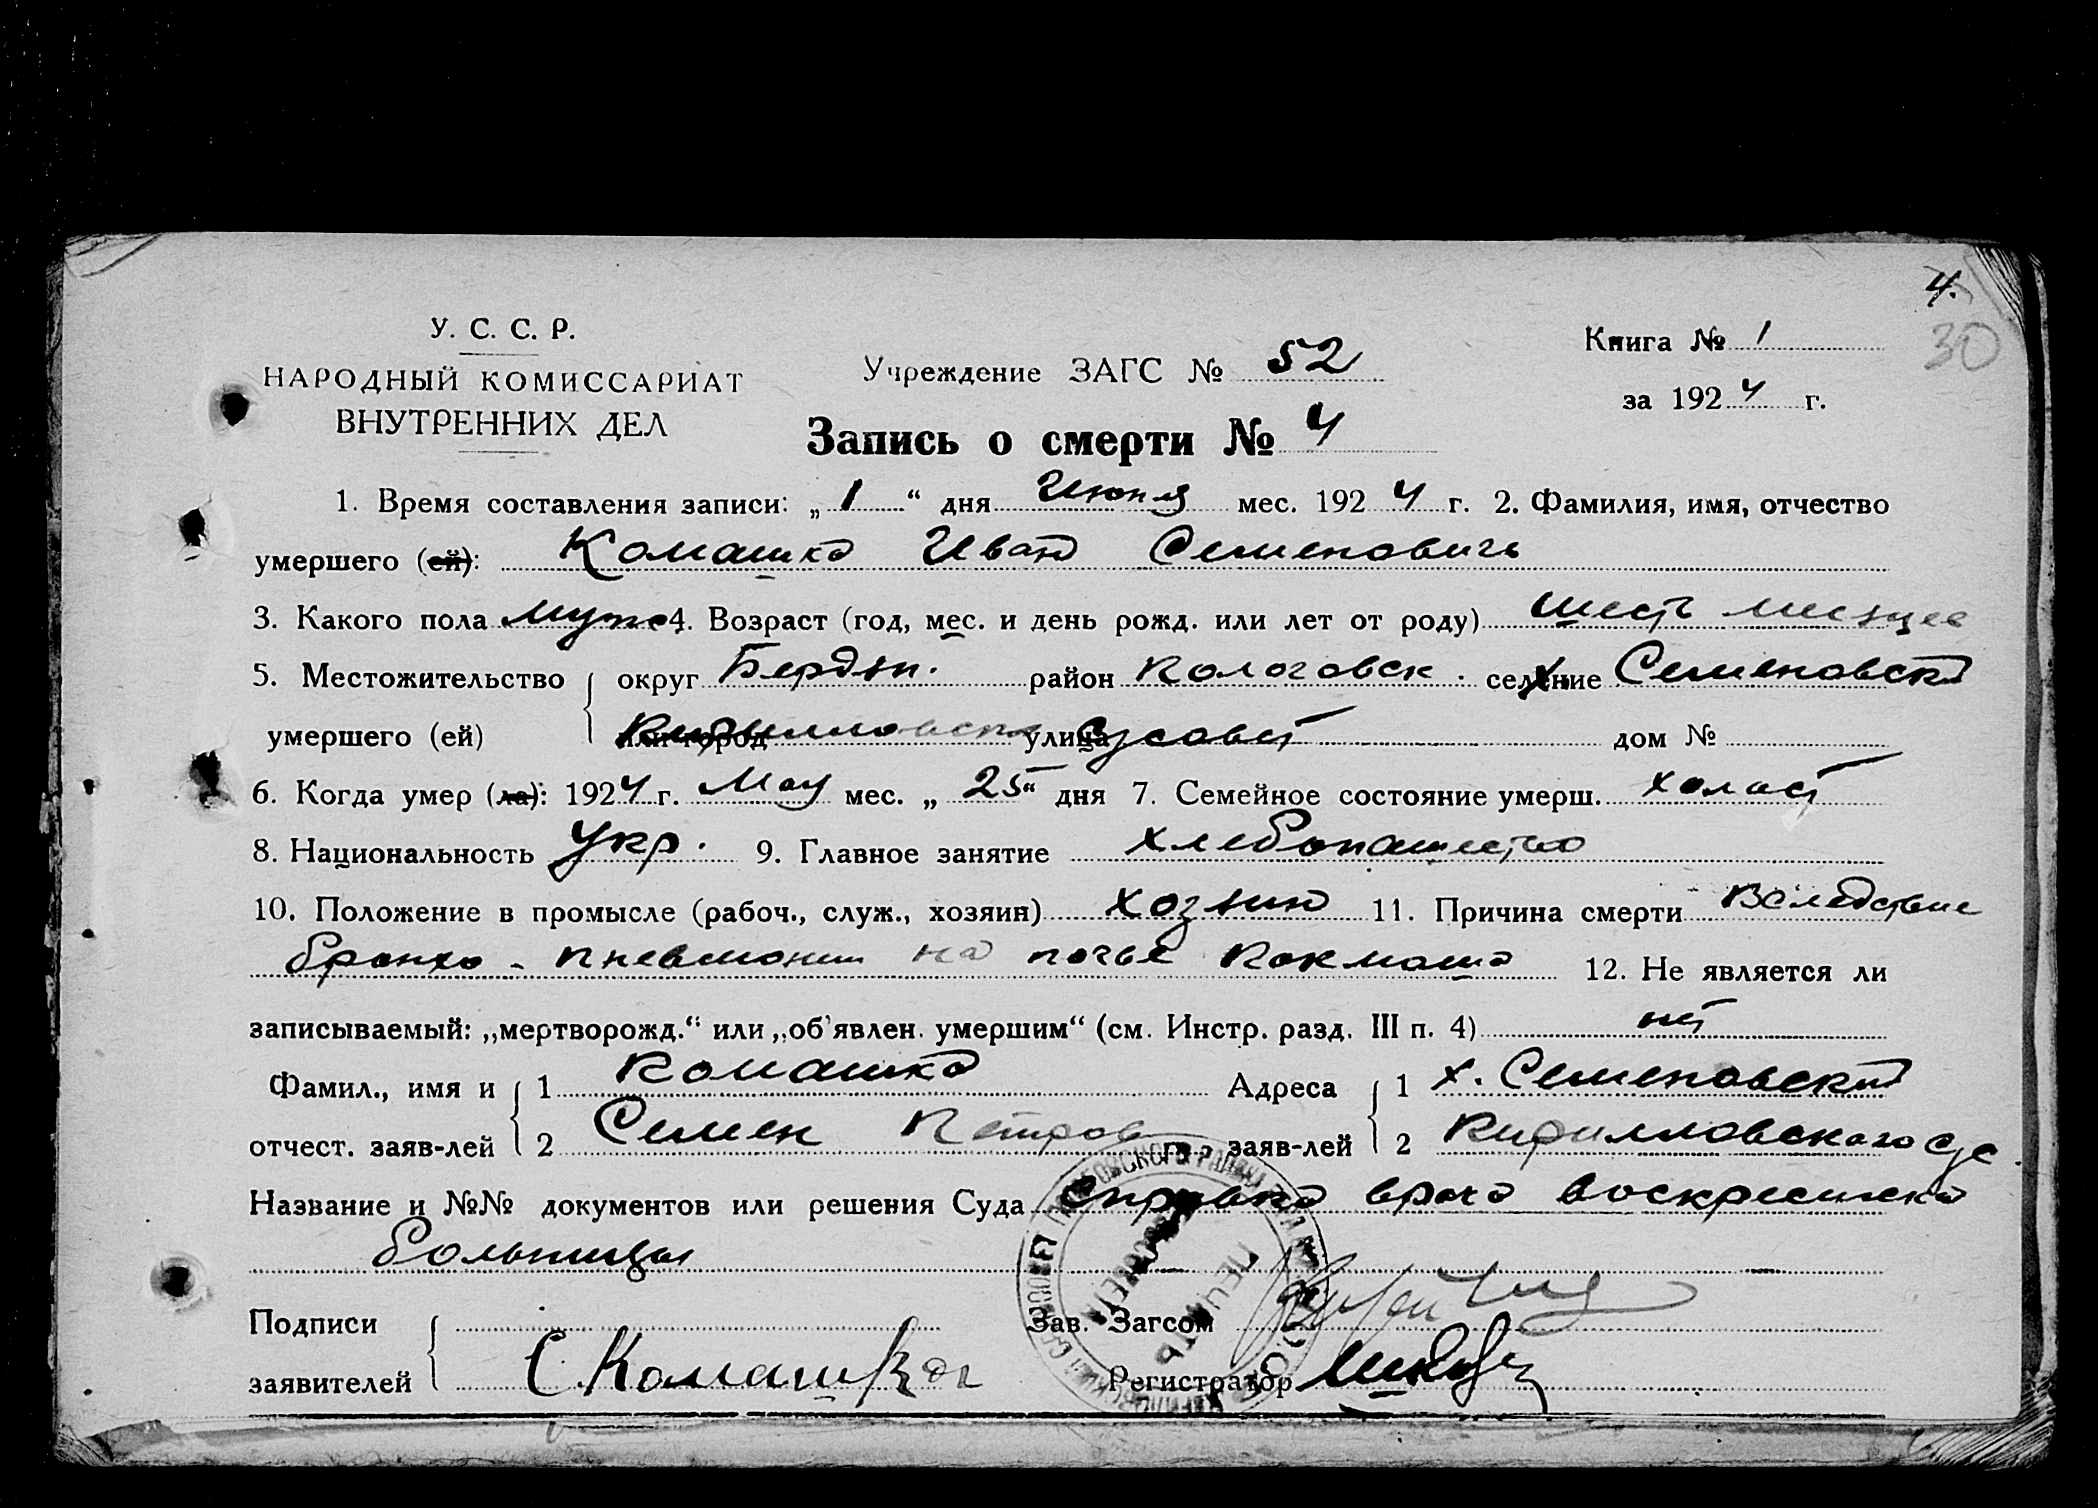 4.
30
У. С. С. Р.
НАРОДНЫЙ КОМИССАРИАТ
ВНУТРЕННИХ ДЕЛ
Учреждение ЗАГС № 52
Книга № 1
за 1924 г.
Запись о смерти № 4
1. Время составления записи: „1“ дня Июня мес. 1924 г. 2. Фамилия, имя, отчество
умершего (ей): Комашко Иван Семенович
3. Какого пола муж 4. Возраст (год, мес. и день рожд. или лет от роду) шесть месяцев
5. Местожительство округ Бердян. район Пологовск. селение х Семеновский
умершего (ей) или город Кирилловского улица с/совет дом №
6. Когда умер (ла): 1924 г. Мая мес. „25“ дня 7. Семейное состояние умерш. холост
8. Национальность Укр. 9. Главное занятие хлебопашество
10. Положение в промысле (рабоч., служ., хозяин) хозяин 11. Причина смерти Вследствие
бронхо-пневмонии на почве коклюша 12. Не является ли
записываемый: „мертворожд.“ или „об’явлен. умершим“ (см. Инстр. разд. III п. 4) нет
Фамил., имя и 1 Комашко Адреса 1 х. Семеновский
отчест. заяв-лей 2 Семен Петров заяв-лей 2 Кирилловского с/с
Название и №№ документов или решения Суда Справка врача воскресенской
больницы
Подписи
заявителей С. Комашко
Зав. Загсом
Регистратор
ПЕЧАТЬ